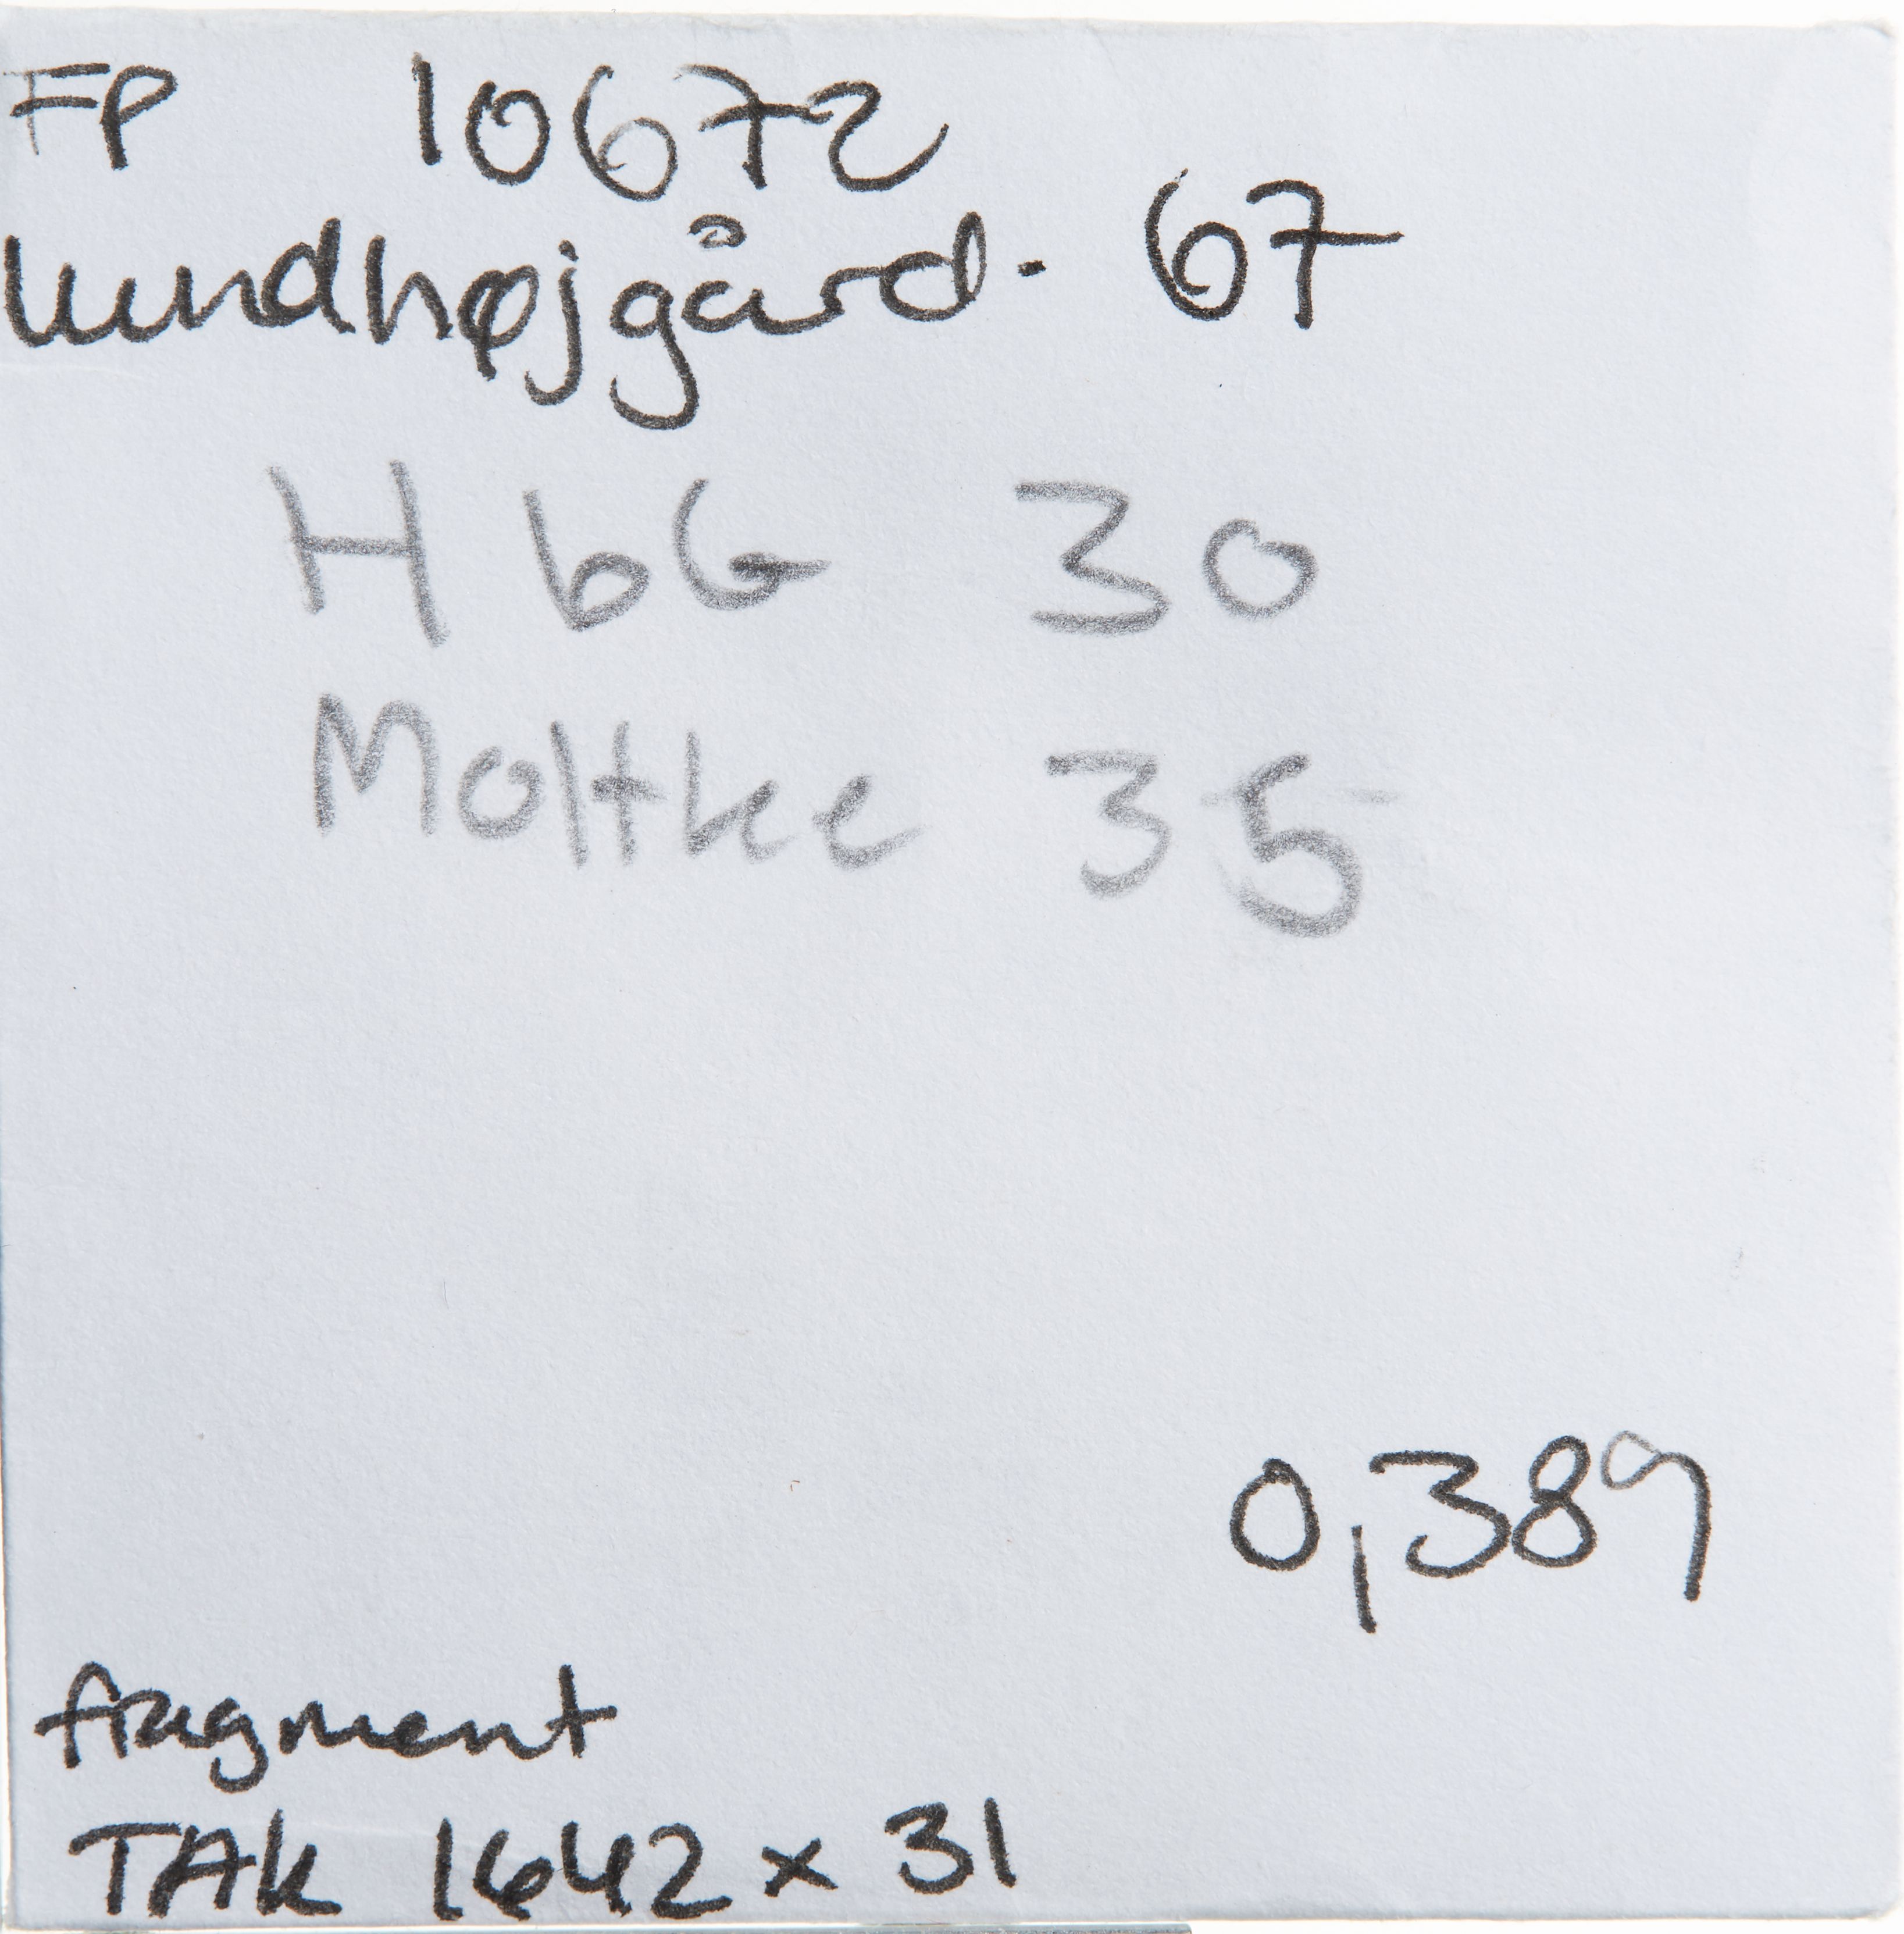 FP 10672
Lundhøjgård. 67
HbG 30
Moltke 35
0,389
fragment
TAK 1642 x 31